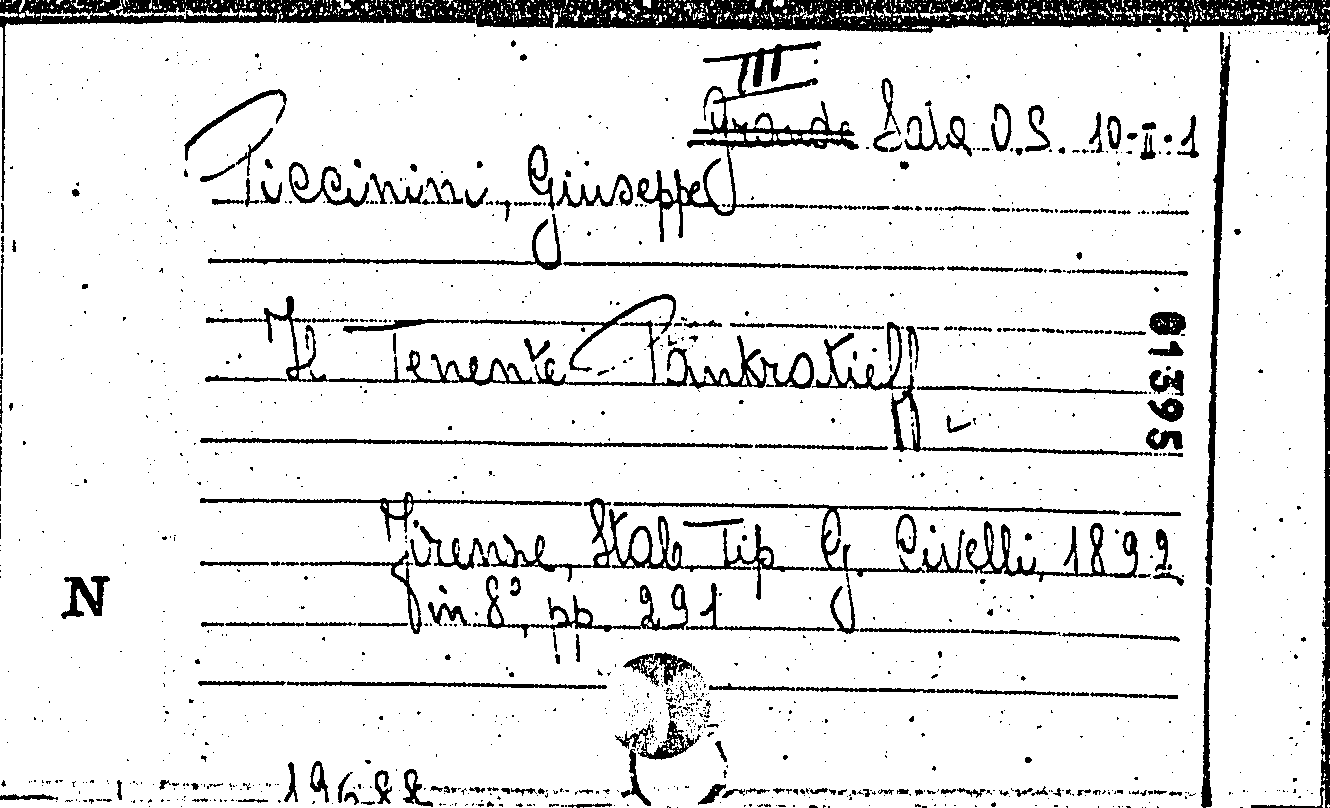 III
Grande Sala O.S. 10-II-1
Piccinini, Giuseppe
Il Tenente Pankratieff
01395
Firenze, Stab. Tip. G. Civelli, 1892
in 8°, pp. 291
N